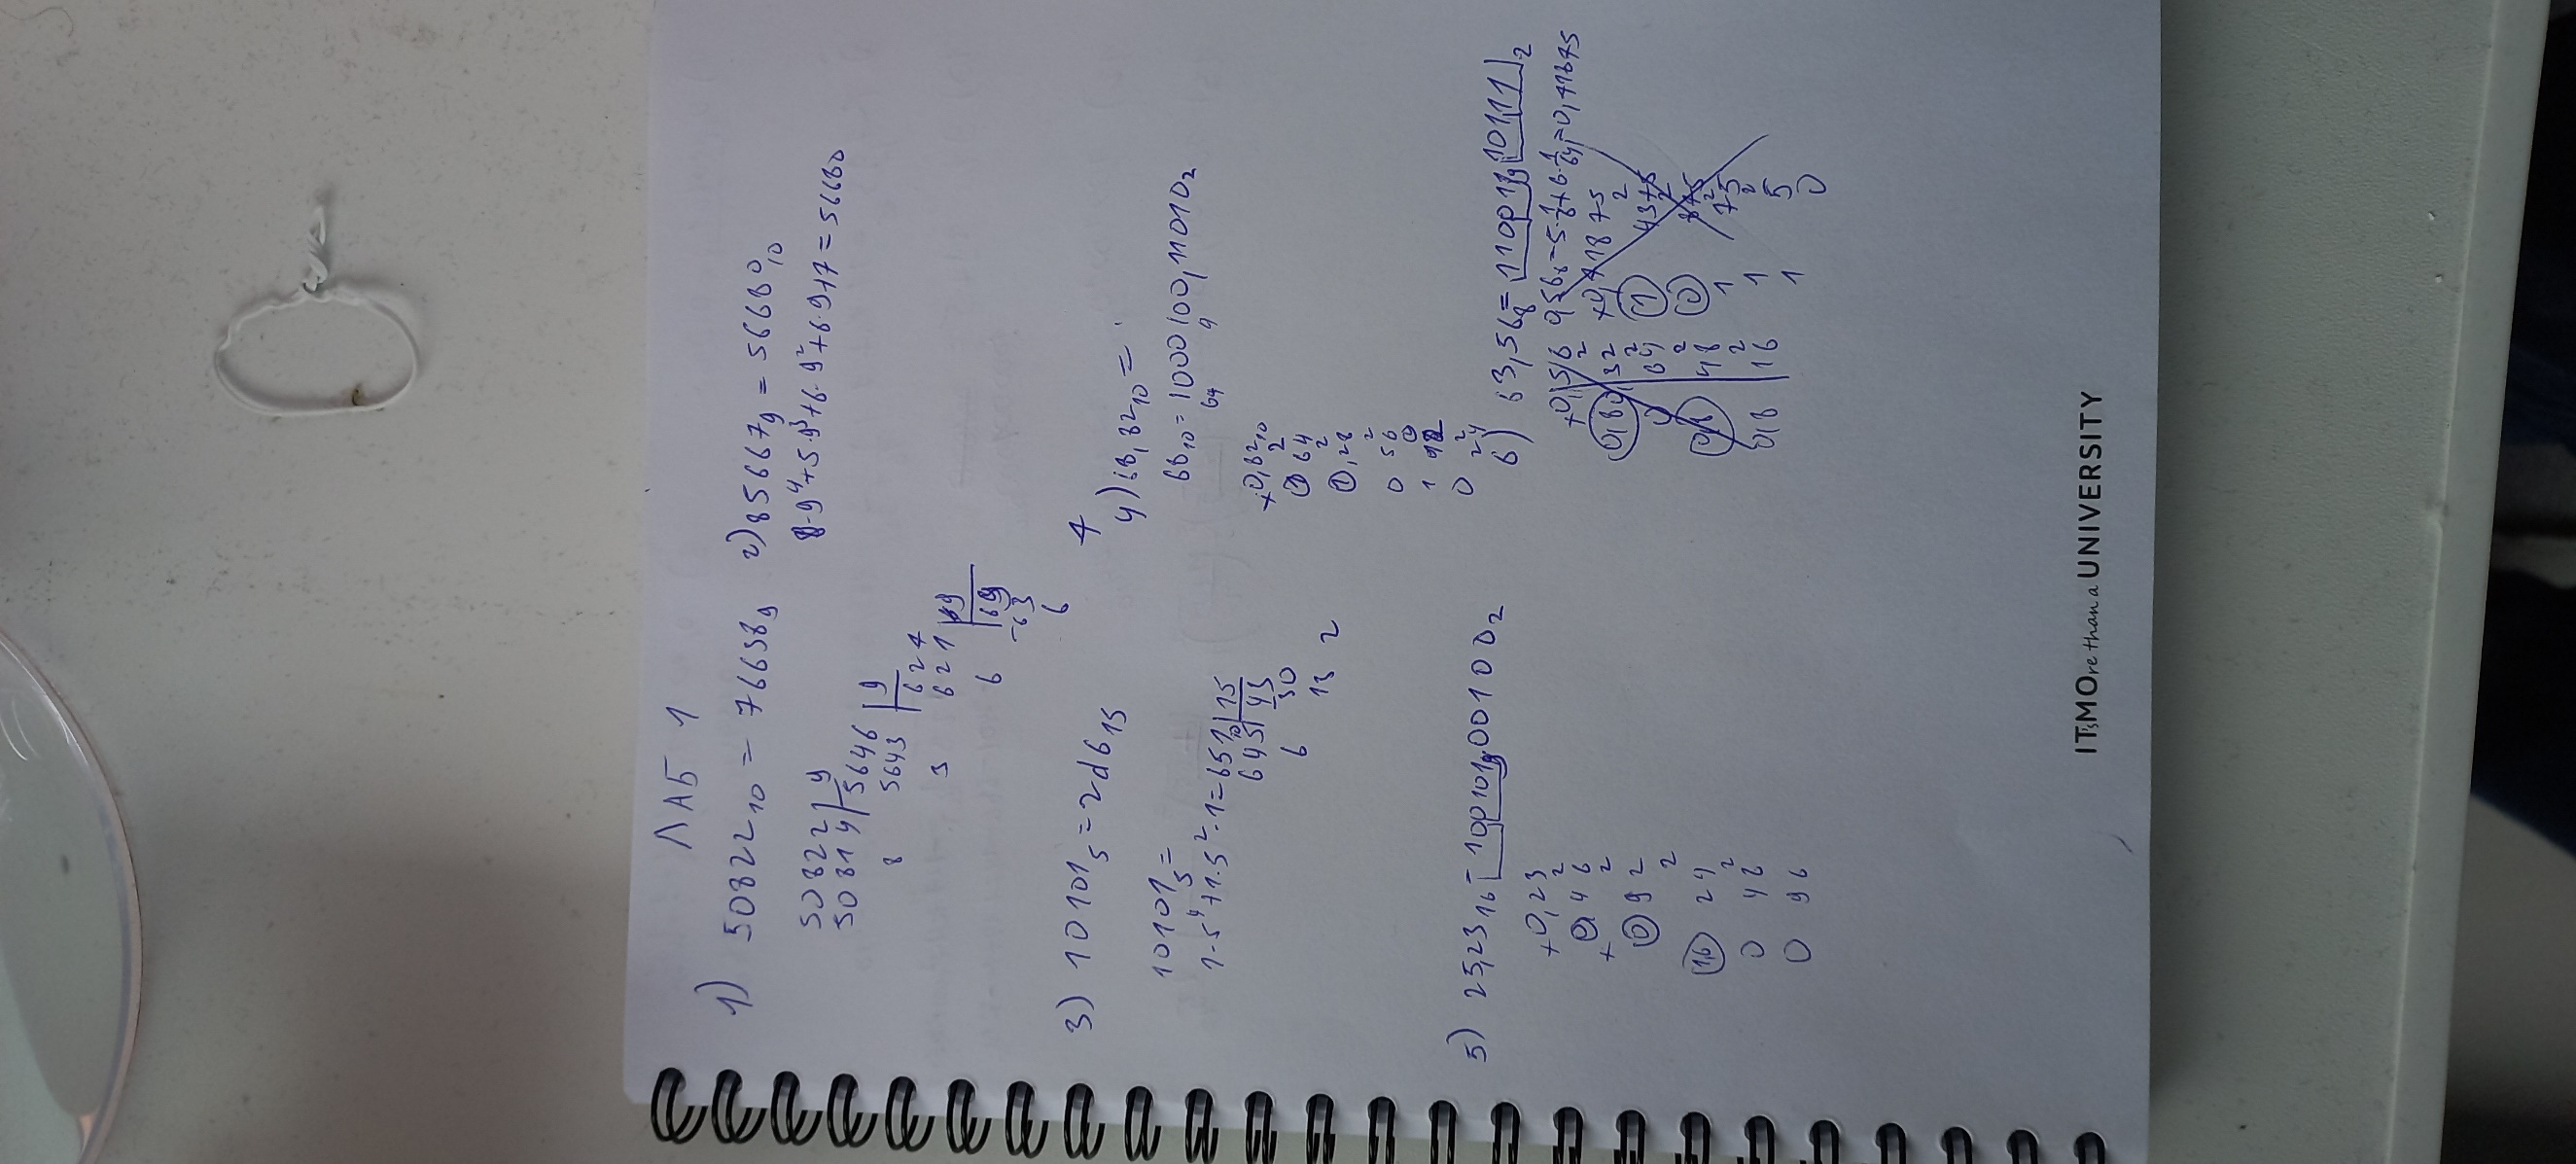 ЛАБ 1
1) 50822₁₀ = 76638₉
50822 | 9
50814 | 5646 | 9
8 5643 | 624
3 621
6 69 | 9
-63
6
2) 85667₉ = 56680₁₀
8·9⁴+5·9³+6·9²+6·9+7=56680
3) 10101₅ = 2d6₁₅
10101₅ =
1·5⁴+1·5²·1=651 | 15
645 | 43
6 30
13 2
4) 68,82₁₀ =
68₁₀ = 1000100,11010₂
64 4
×0,82₁₀
2
① 64
2
①,28
2
0 56
1 12
2
0 24
5) 25,23₁₆ = 100101,00100₂
×0,23
2
0,46
2
0 92
2
24
2
0 48
0 96
6) 63,56₈ = 110011,10111₂
956₈=5·1/8+6·1/64=0,71875
×0,71875
2
① 4375
2
0 875
2
1 75
2
1 5
1 0
ITsMOre than a UNIVERSITY